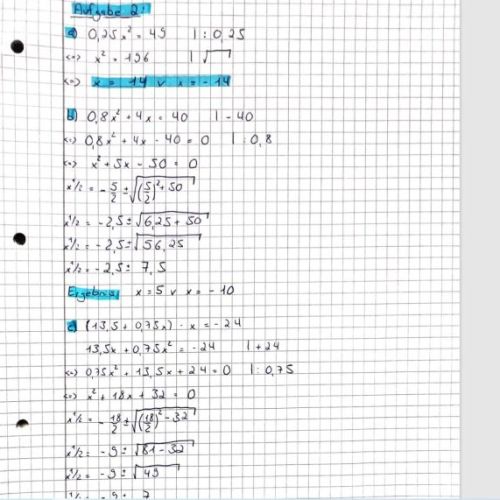 Aufgabe 2:
a) 0,25x² = 49 | : 0,25
<=> x² = 196 | √
<=> x = 14 ∨ x = -14
b) 0,8x² + 4x = 40 | - 40
<=> 0,8x² + 4x - 40 = 0 | : 0,8
<=> x² + 5x - 50 = 0
x1/2 = - 5/2 ± √((5/2)² + 50)
x1/2 = - 2,5 ± √(6,25 + 50)
x1/2 = - 2,5 ± √(56,25)
x1/2 = - 2,5 ± 7,5
Ergebnis: x = 5 ∨ x = - 10
c) (13,5 + 0,75x) · x = - 24
13,5x + 0,75x² = - 24 | + 24
<=> 0,75x² + 13,5x + 24 = 0 | : 0,75
<=> x² + 18x + 32 = 0
x1/2 = - 18/2 ± √((18/2)² - 32)
x1/2 = - 9 ± √(81 - 32)
x1/2 = - 9 ± √(49)
x1/2 = - 9 ± 7